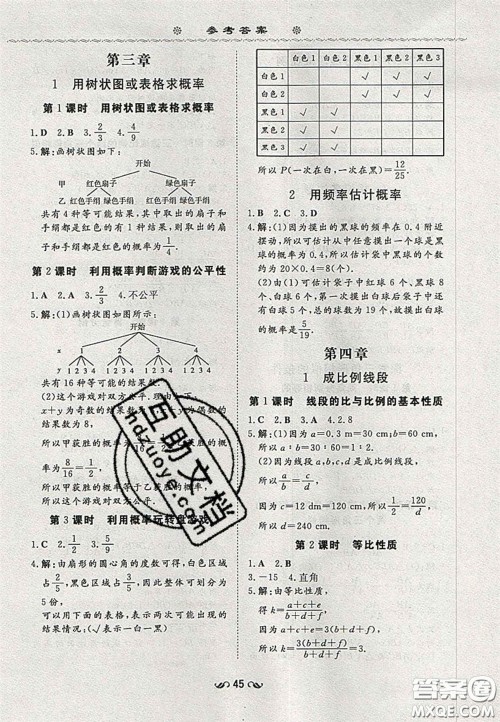 参考答案
第三章
1 用树状图或表格求概率
第1课时 用树状图或表格求概率
1.D 2.B 3.2/3 4.4/9
5.解:画树状图如下:
开始
甲 红色扇子 白色扇子
乙 红色手绢 绿色手绢 红色手绢 绿色手绢
共有4种可能结果,其中取出的扇子和手绢都是红色的有1种结果,则取出的扇子和手绢都是红色的概率为1/4.
第2课时 利用概率判断游戏的公平性
1.D 2.B 3.2/3 4.不公平
5.解:(1)画树状图如图所示:
开始
x 1 2 3 4
y 1234 1234 1234 1234
共有16种等可能结果数;
所以甲获胜的概率为
8/16=1/2,
所以这个游戏对双方公平.
第3课时 利用概率玩转盘游戏
1.C 2.1/2 3.5/9
4.解:由扇形的圆心角的度数可得,白色区域占2/5,黑色区域占3/5,
5份,
可以用下面的表格,表示两次可能出现的结果情况:(√表示一白一黑)
白色1 白色2 黑色1 黑色2 黑色3
白色1 √ √ √
白色2 √ √ √
黑色1 √ √
黑色2 √ √
黑色3 √ √
所以P(一次在白,一次在黑)=12/25.
2 用频率估计概率
1.A 2.B 3.D
4.解:(1)因为摸出的黑球的频率在0.4附近摆动,所以可估计从中一次摸出一个球是黑球的概率为0.4,所以可估计黑球的个数约为20×0.4=8(个).
(2)由(1)可估计袋子中红球的个数为20−8−6=6(个).
因为一次摸出白球后袋子中还有白球5个,总的球数为19个,所以所求概率为5/19.
第四章
1 成比例线段
第1课时 线段的比与比例的基本性质
1.D 2.B 3.A 4.2.8
5.解:(1)因为a=0.3 m=30 cm,b=60 cm,
所以a∶b=30∶60=1∶2.
(2)因为线段a,b,c,d是成比例线段,
所以a/b=c/d.因为a/b=1/2,所以1/2=120/d.
因为c=12 dm=120 cm,所以1/2=120/d,
所以d=240 cm.
第2课时 等比性质
1.A 2.A
3.-15 4.直角
5.解:由等比性质,
得k=a+c+e/b+d+f.
因为a+c+e=3(b+d+f),
所以k=3(b+d+f)/b+d+f=3.
45
互助文档
hdzuoye.com
答案圈
MXQE.COM